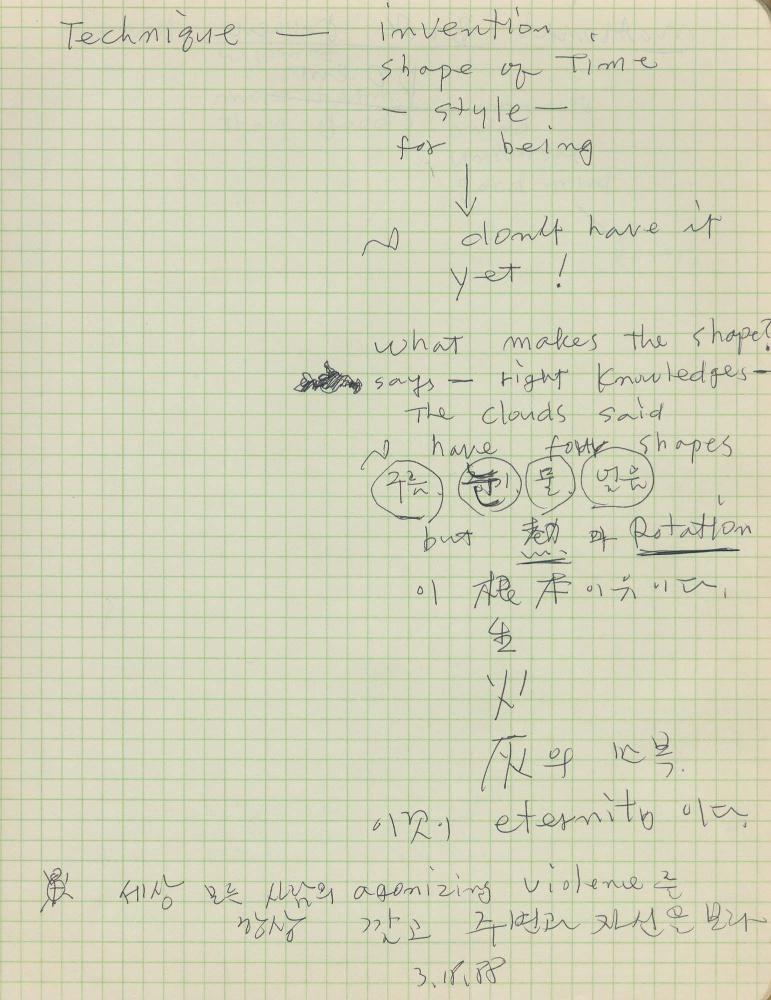 Technique — invention.
shape of Time
— style —
for being
don't have it
yet !
what makes the shape?
says — right knowledges —
The clouds said
have four shapes
구름 물 얼음
but 熱 과 Rotation
이 根本 이유 이다.
生
火
灰의 반복.
이것이 eternity 이다.
세상 모든 사람의 agonizing violence를
항상 갖고 주변과 자신을 보라
3.18.88